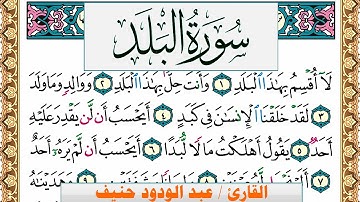 سُورَةُ البَلَدِ
لَآ أُقْسِمُ بِهَٰذَا ٱلْبَلَدِ ١ وَأَنتَ حِلٌّۢ بِهَٰذَا ٱلْبَلَدِ ٢ وَوَالِدٍ وَمَا وَلَدَ
٣ لَقَدْ خَلَقْنَا ٱلْإِنسَٰنَ فِى كَبَدٍ ٤ أَيَحْسَبُ أَن لَّن يَقْدِرَ عَلَيْهِ
أَحَدٌ ٥ يَقُولُ أَهْلَكْتُ مَالًا لُّبَدًا ٦ أَيَحْسَبُ أَن لَّمْ يَرَهُۥٓ أَحَدٌ
٧ ٨ ٩ وَهَدَيْنَٰهُ
القارئ / عبد الودود حنيف